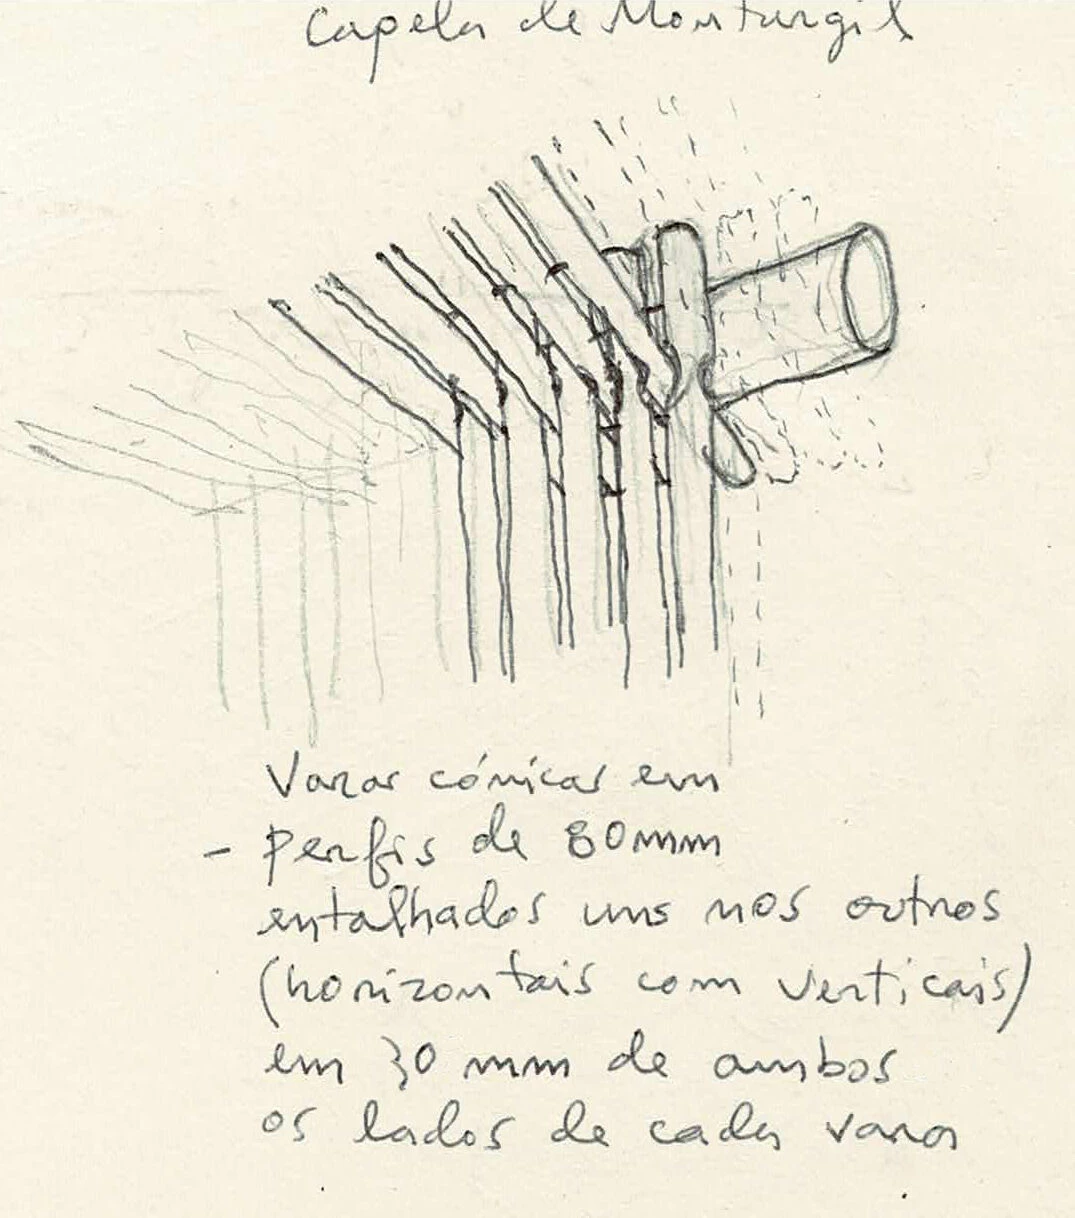 Capela de Montargil
Varas cónicas em
- Perfis de 80mm
entalhados uns nos outros
(horizontais com verticais)
em 30 mm de ambos
os lados de cada vara